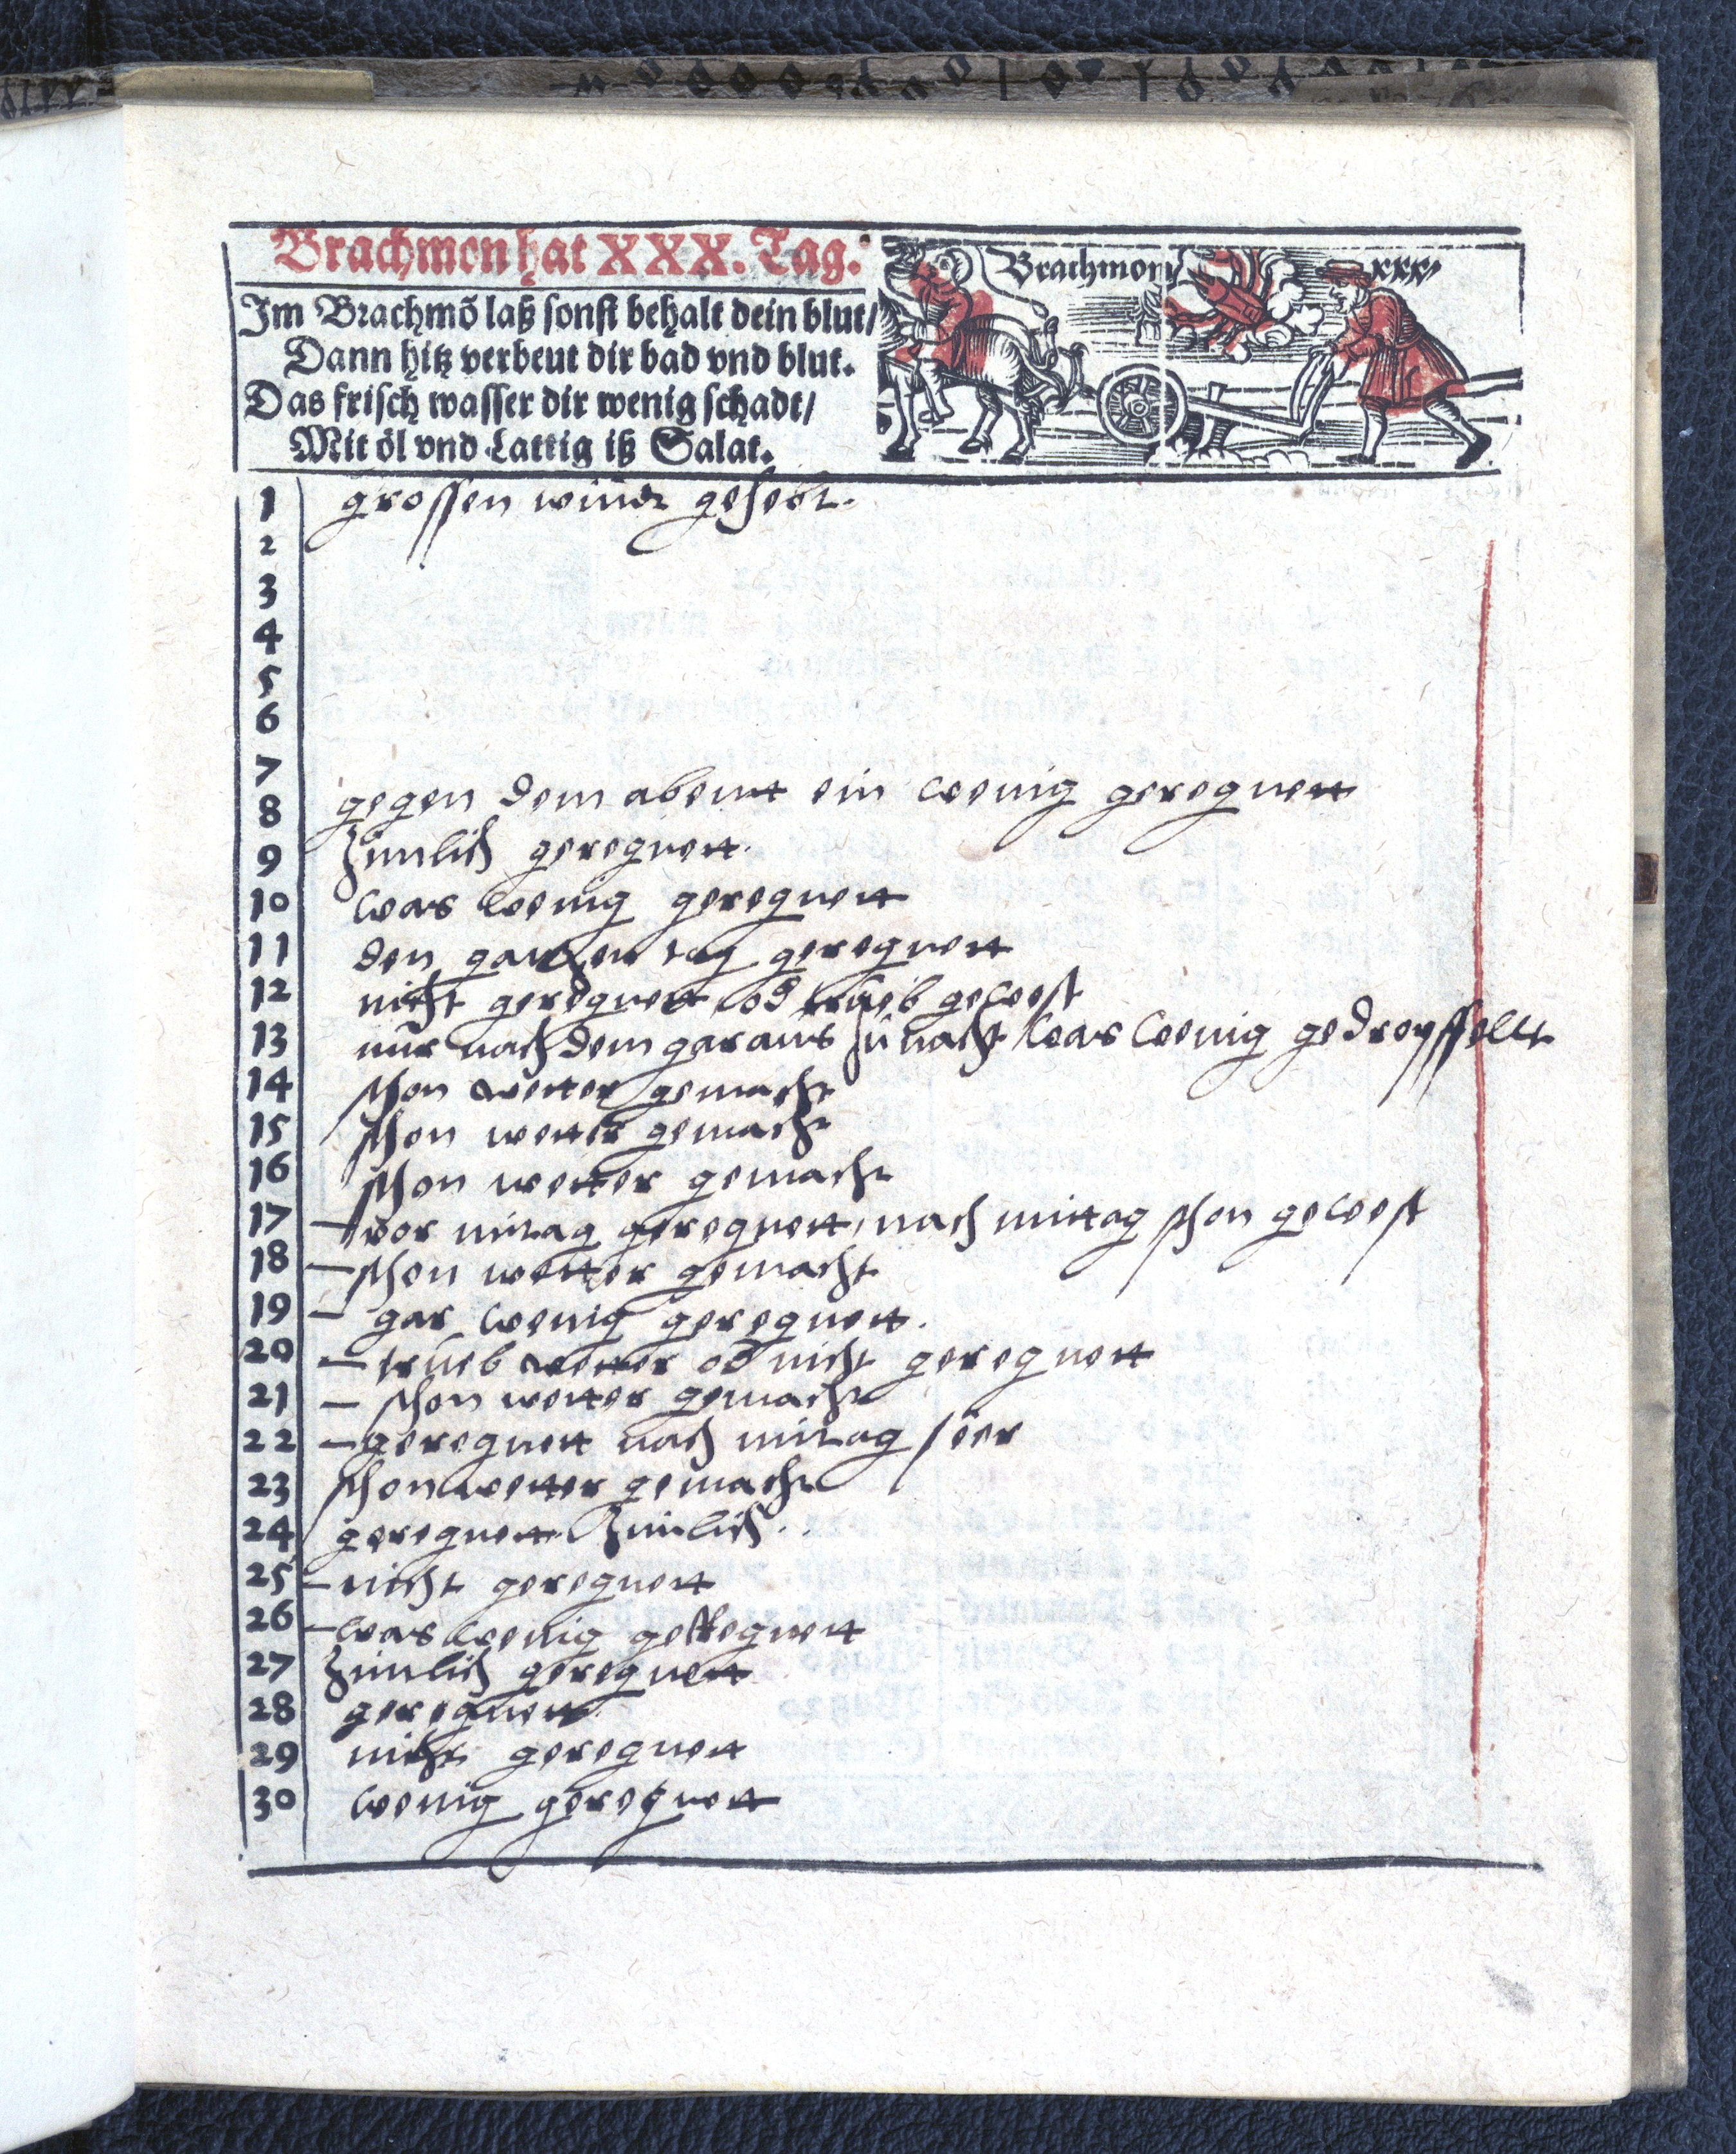 Brachmon hat XXX. Tag.
Im Brachmõ laß sonst behalt dein blut/
Dann hitz verbeut dir bad vnd blut.
Das frisch wasser dir wenig schadt/
Mit öl vnd Lattig iß Salat.
Brachmon xxx
1 grossen windt gehebt.
2
3
4
5
6
7
8 gegen dem abentt ein wenig geregnett
9 Zimlich geregnett.
10 was wenig geregnett
11 den gantzen tag geregnett
12 nicht geregnett od trueb gewest
13 nur nach dem garaus zu nacht was wenig gedroyssellt
14 schon wetter gemacht
15 schon wetter gemacht
16 schon wetter gemacht
17 – vor mitag geregnett, nach mittag schon gewest
18 – schon wetter gemacht
19 – gar wenig geregnett.
20 – trueb wetter od nicht geregnett
21 – schon wetter gemacht
22 – geregnett nach mitag seer
23 schon wetter gemacht
24 geregnett Zimlich..
25 – nicht geregnett
26 – was wenig geregnett
27 Zimlich geregnett
28 geregnett
29 nicht geregnett
30 wenig geregnett